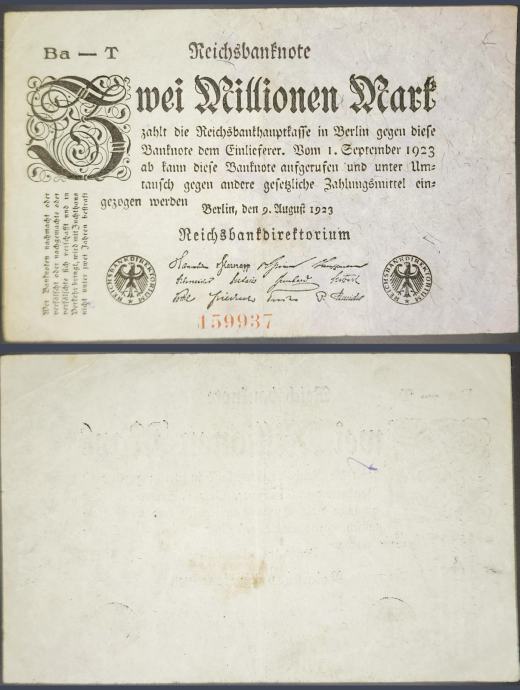 Ba — T Reichsbanknote
Zwei Millionen Mark
zahlt die Reichsbankhauptkasse in Berlin gegen diese
Banknote dem Einlieferer. Vom 1. September 1923
ab kann diese Banknote aufgerufen und unter Um-
tausch gegen andere gesetzliche Zahlungsmittel ein-
gezogen werden
Berlin, den 9. August 1923
Reichsbankdirektorium
Wer Banknoten nachmacht oder
verfälscht oder nachgemachte oder
verfälschte sich verschafft und in
Verkehr bringt, wird mit Zuchthaus
nicht unter zwei Jahren bestraft
REICHSBANKDIREKTORIUM
REICHSBANKDIREKTORIUM
159937